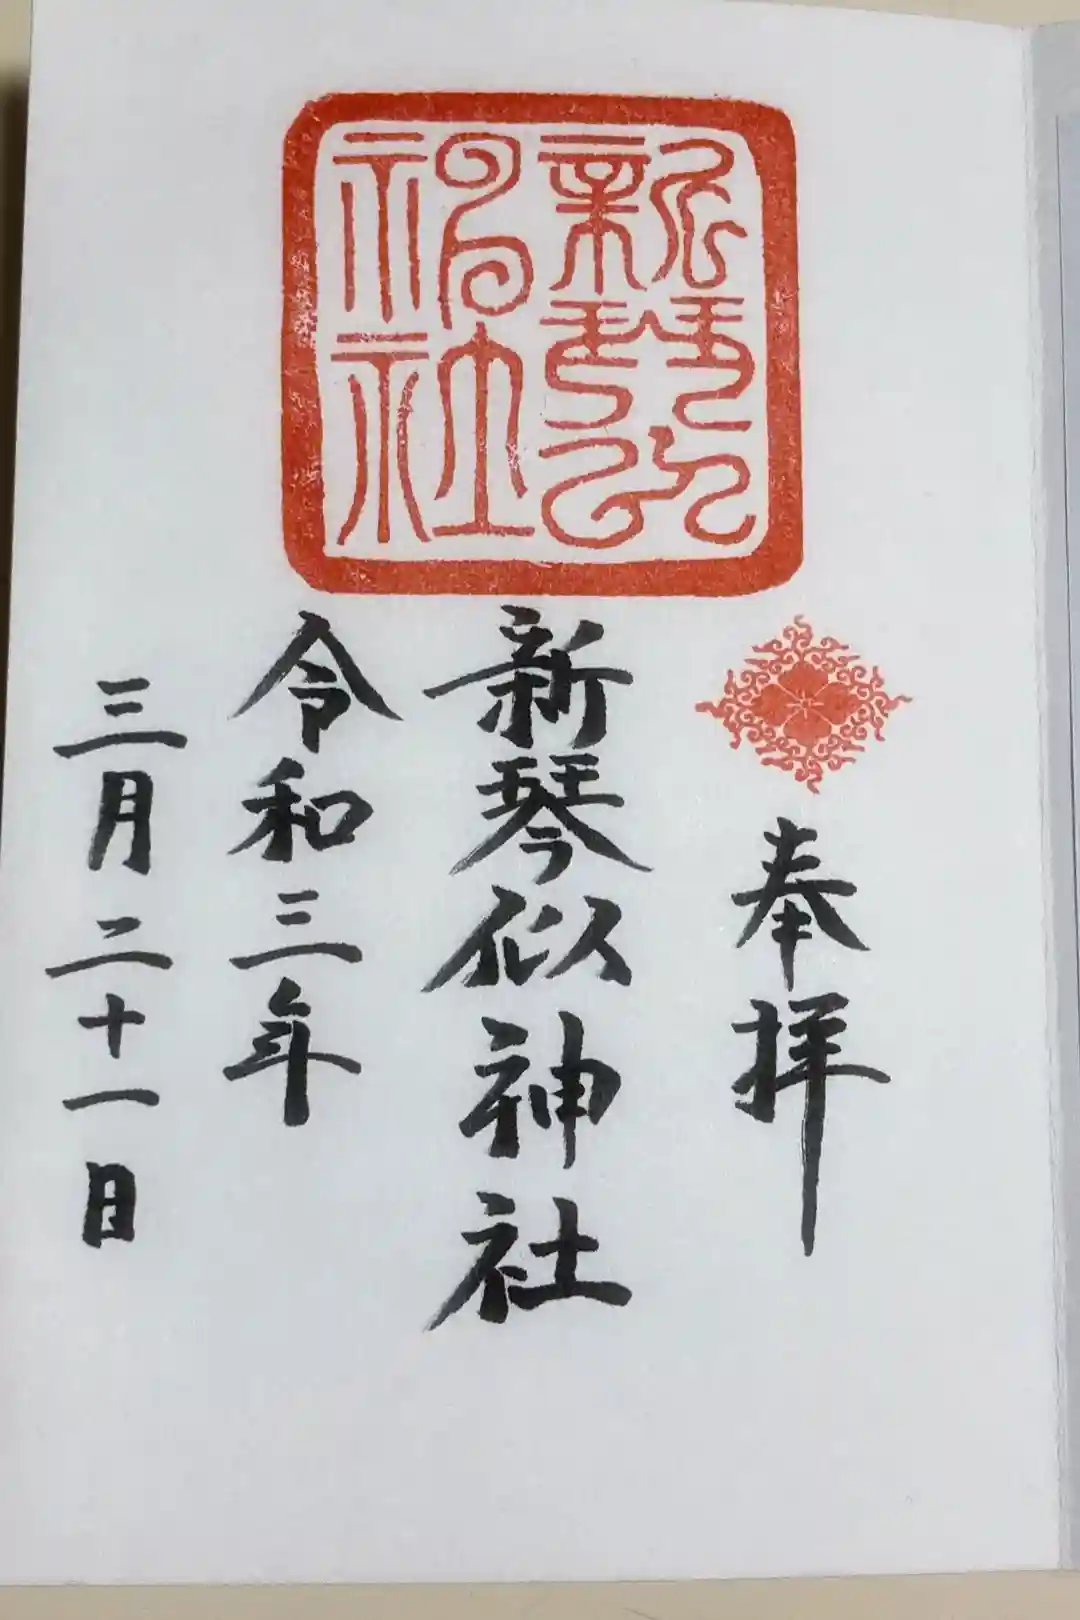 奉拝
新琴似神社
令和三年
三月二十一日
新琴似
神社